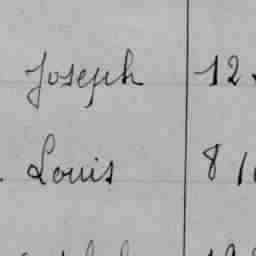 Joseph 12
Louis 8